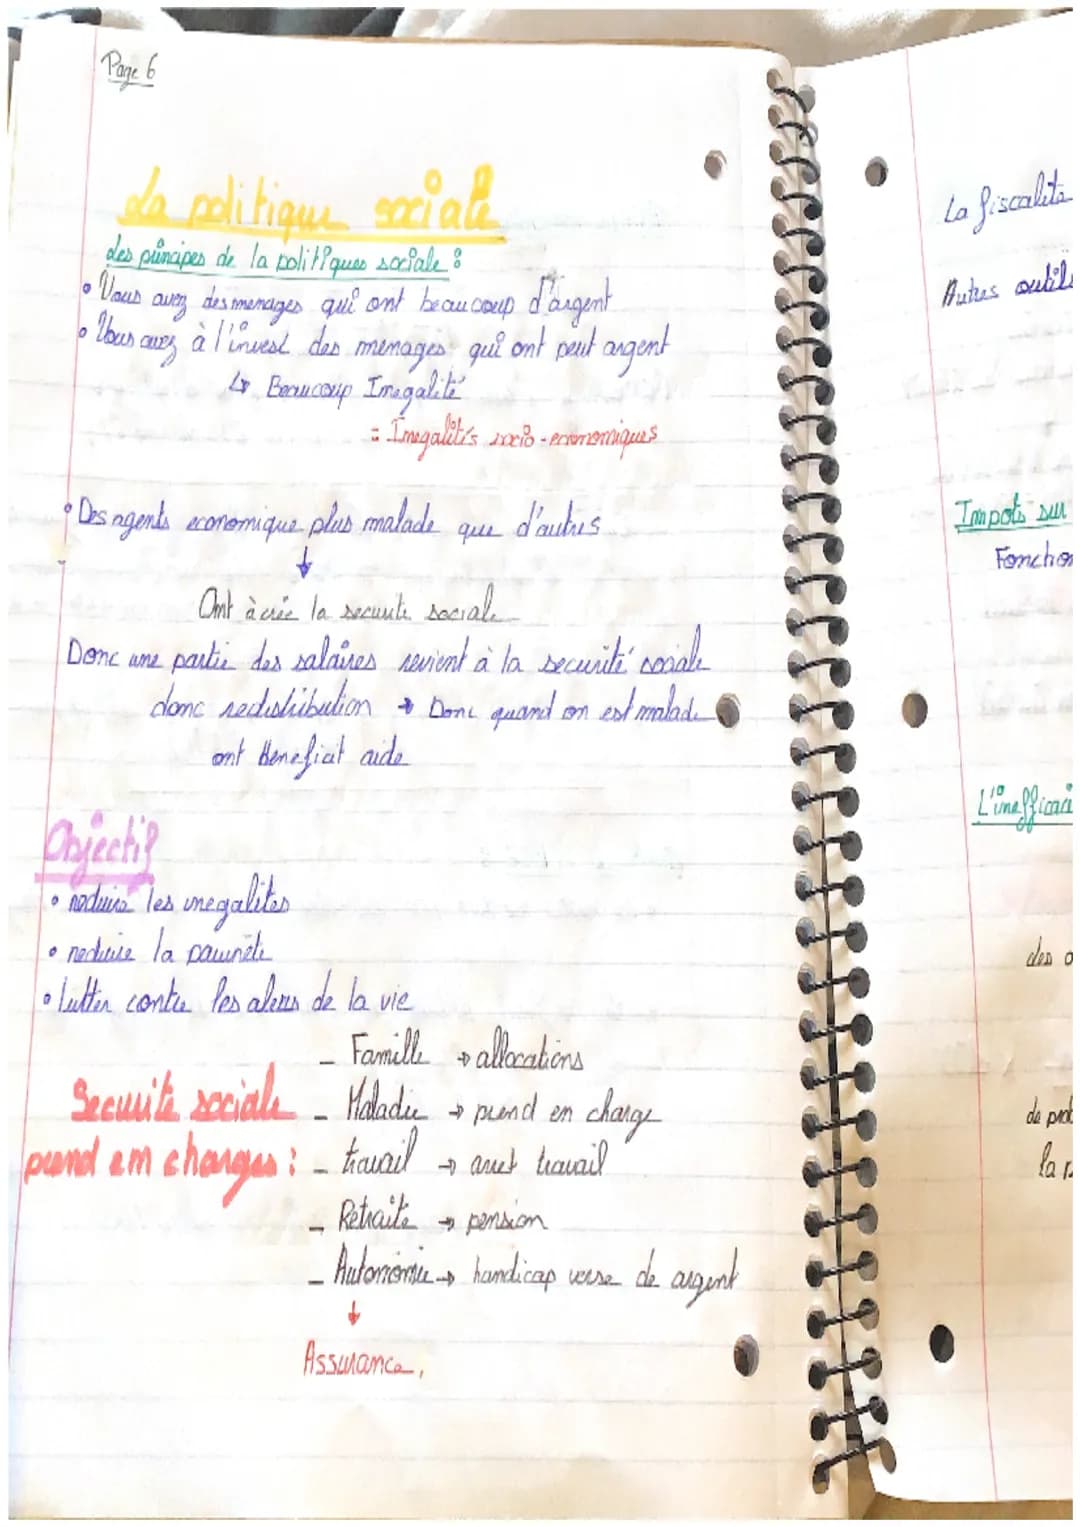 Page 6
La politique sociale
Les principes de la politiques sociale :
• Vous avez des menages qui ont beaucoup d'argent
• Vous avez à l'invest des menages qui ont peut argent
↳ Beaucoup Inegalité
= Inegalités socio-economiques
• Des agents economique plus malade que d'autres
↓
Ont à crée la securite sociale
Donc une partie des salaires revient à la securité sociale
donc redistribution → Donc quand on est malade
ont Beneficit aide
Objectif
• reduire les inegalites
• reduire la pauvrete
• lutter contre les aleas de la vie
Securite sociale
prend em charges :
– Famille → allocations
– Maladie → prend en charge
– travail → arret travail
– Retraite → pension
– Autonomie → handicap verse de argent
↓
Assurance,
La fiscalite
Autres outils
Impots sur
Fonction
L'inefficaci
des
de prod
la p